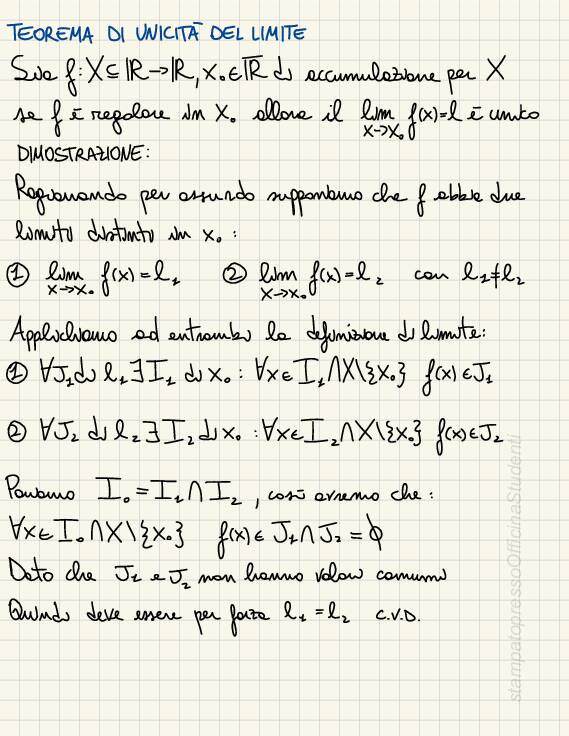 TEOREMA DI UNICITÀ DEL LIMITE
Sia f: X ⊆ ℝ → ℝ, x₀ ∈ ℝ̅ di accumulazione per X
se f è regolare in x₀ allora il lim f(x) = l è unito
x→x₀
DIMOSTRAZIONE:
Ragionando per assurdo supponiamo che f abbia due
limiti distinti in x₀ :
① lim f(x) = l₁ ② lim f(x) = l₂ con l₁ ≠ l₂
x→x₀ x→x₀
Applichiamo ad entrambi la definizione di limite:
① ∀J₁ di l₁ ∃ I₁ di x₀ : ∀x ∈ I₁ ∩ X \ {x₀} f(x) ∈ J₁
② ∀J₂ di l₂ ∃ I₂ di x₀ : ∀x ∈ I₂ ∩ X \ {x₀} f(x) ∈ J₂
Poniamo I₀ = I₁ ∩ I₂ , così avremo che :
∀x ∈ I₀ ∩ X \ {x₀} f(x) ∈ J₁ ∩ J₂ = ∅
Dato che J₁ e J₂ non hanno valori comuni
Quindi deve essere per forza l₁ = l₂ C.V.D.
stampatopressoOfficinaStudenti